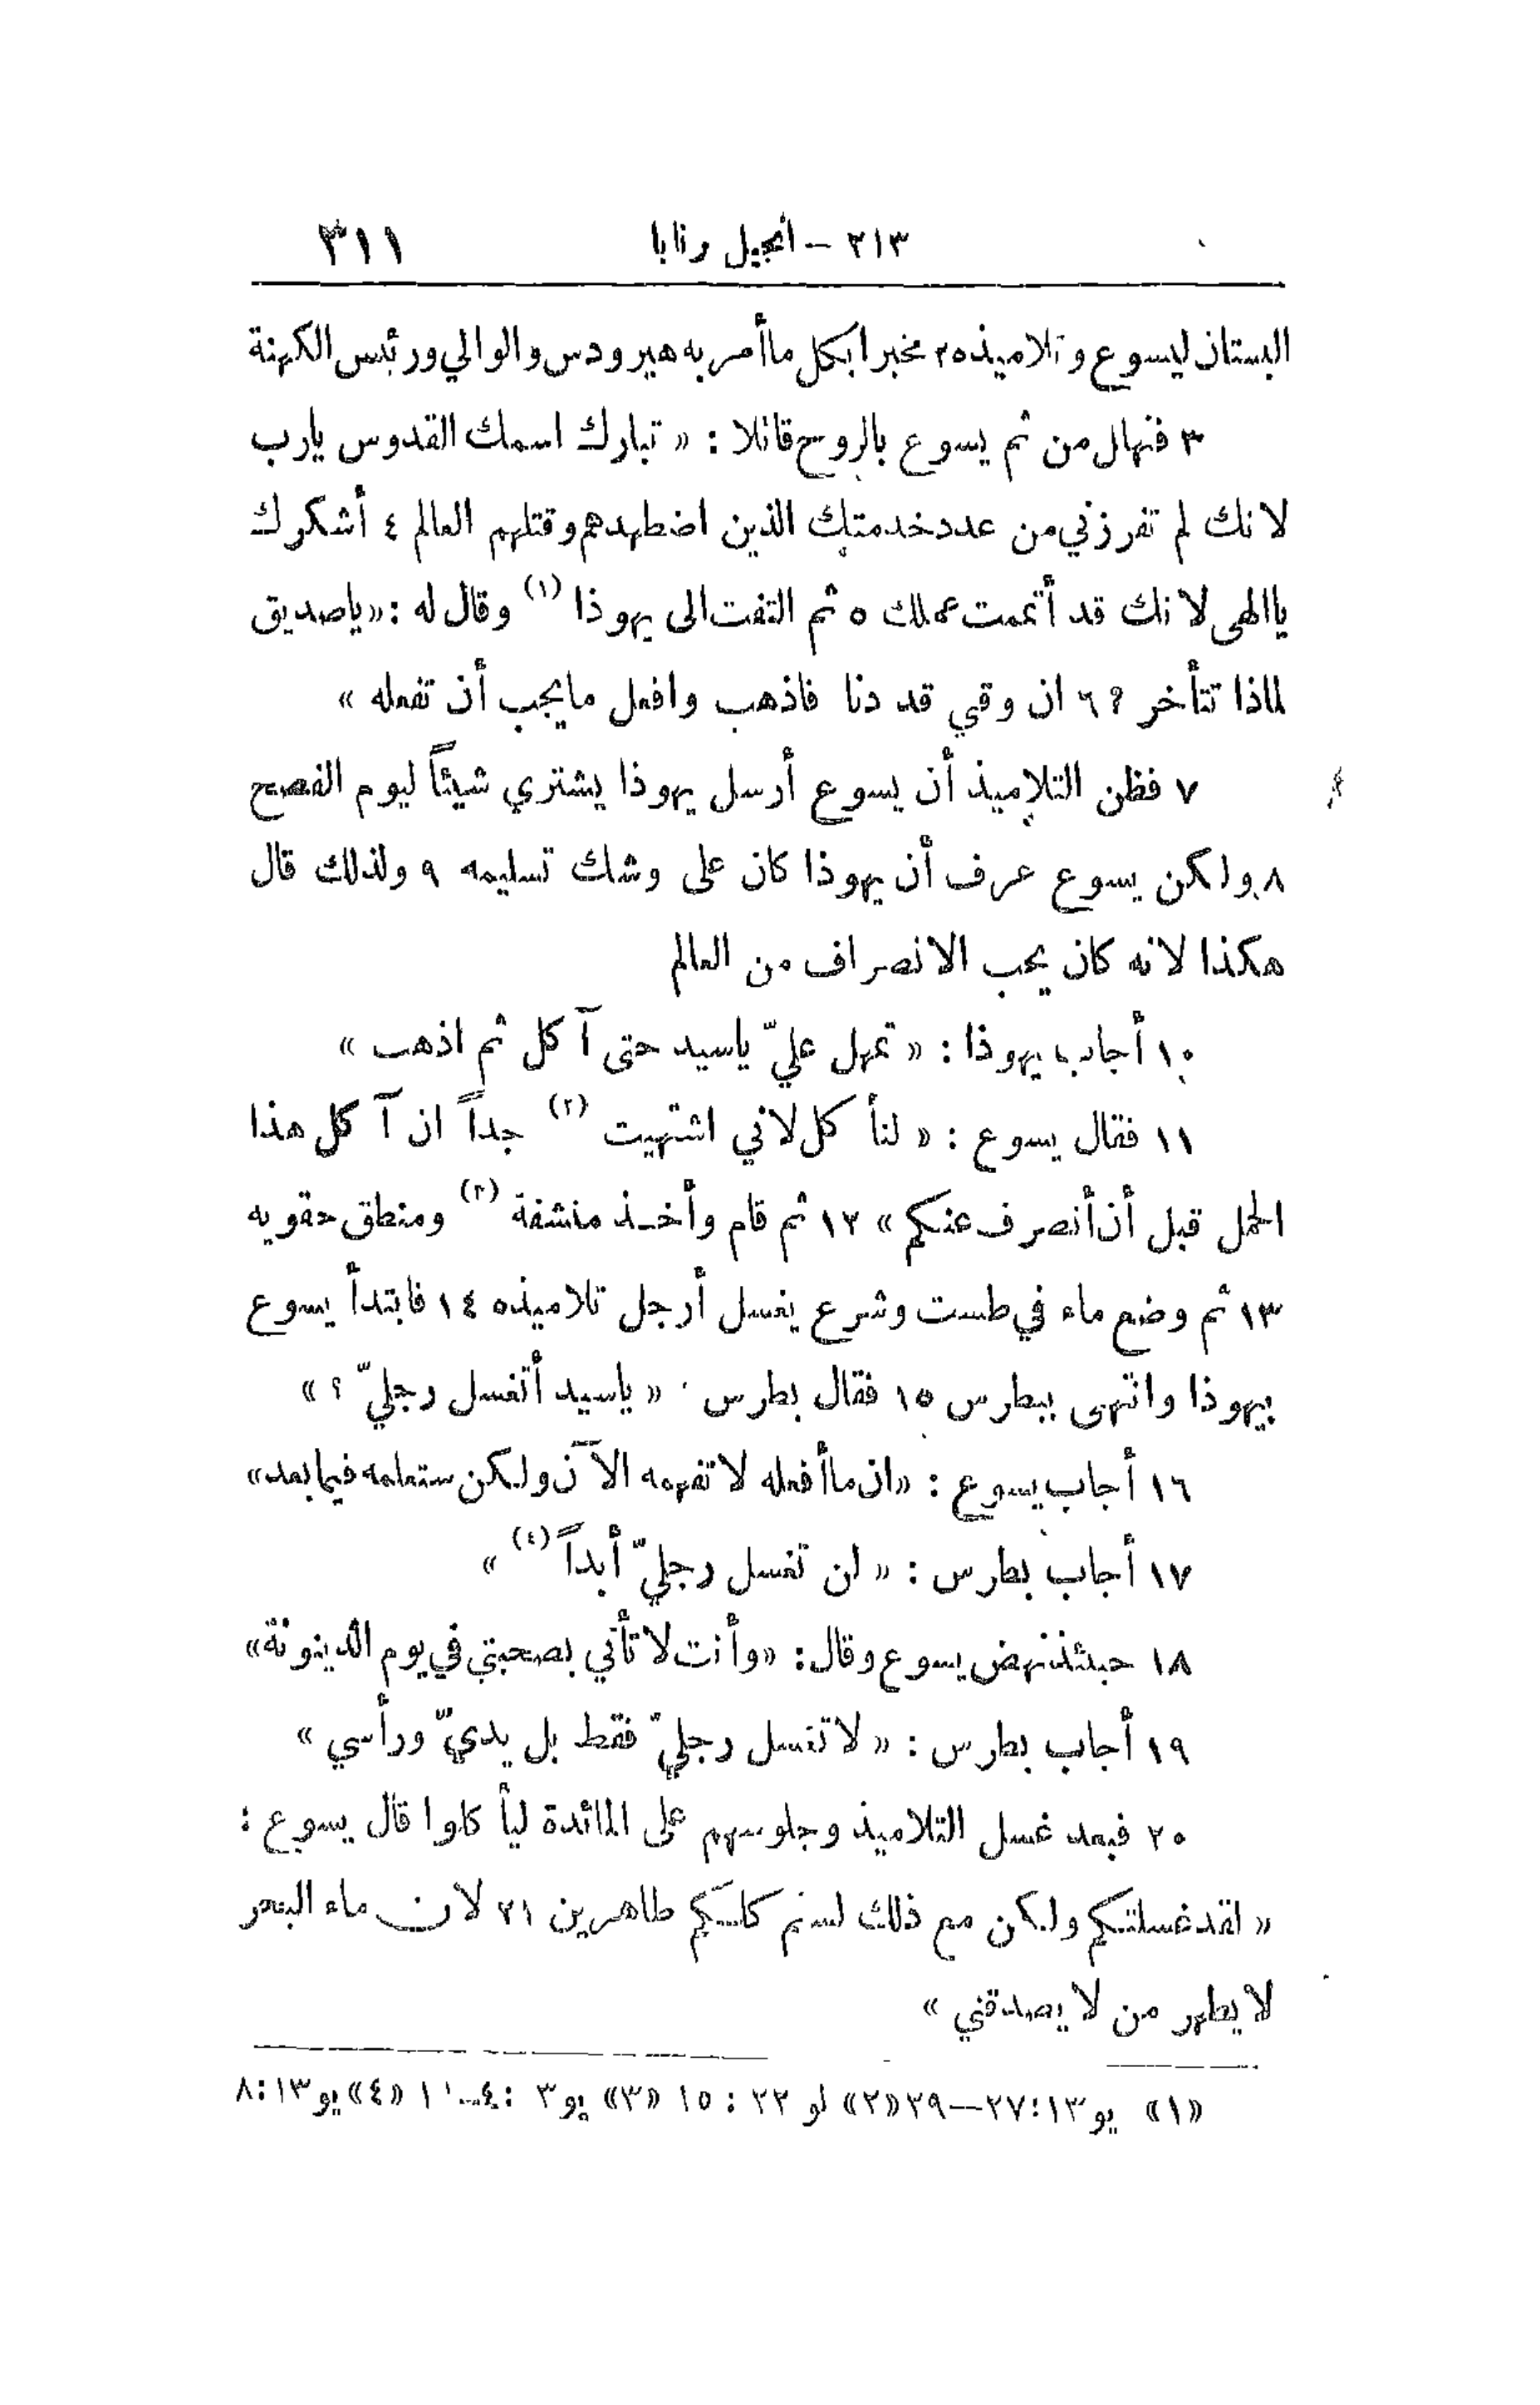 ٢١٣ – أنجيل رنابا ٣١١
البستان ليسوع وتلاميذه ٢ مخبرا بكل ما أمر به هيرودس والوالي ورئيس الكهنة
٣ فتهلل من ثم يسوع بالروح قائلا : « تبارك اسمك القدوس يارب
لانك لم تفرزني من عدد خدمتك الذين اضطهدهم وقتلهم العالم ٤ أشكرك
ياالهي لانك قد أتممت عملك ٥ ثم التفت الى يهوذا (١) وقال له : « ياصديق
لماذا تتأخر ؟ ٦ ان وقتي قد دنا فاذهب وافعل مايجب أن تفعله »
٧ فظن التلاميذ أن يسوع أرسل يهوذا يشتري شيئاً ليوم الفصح
٨ ولكن يسوع عرف أن يهوذا كان على وشك تسليمه ٩ ولذلك قال
هكذا لانه كان يحب الانصراف من العالم
١٠ أجاب يهوذا : « تمهل عليّ ياسيد حتى آكل ثم اذهب »
١١ فقال يسوع : « لنأكل لاني اشتهيت (٢) جداً ان آكل هذا
الحمل قبل أن أنصرف عنكم » ١٢ ثم قام وأخذ منشفة (٣) ومنطق حقويه
١٣ ثم وضع ماء في طست وشرع يغسل أرجل تلاميذه ١٤ فابتدأ يسوع
بيهوذا وانتهى ببطرس ١٥ فقال بطرس « ياسيد أتغسل رجليّ ؟ »
١٦ أجاب يسوع : « ان ما أفعله لا تفهمه الآن ولكن ستعلمه فيما بعد »
١٧ أجاب بطرس : « لن تغسل رجليّ أبداً (٤) »
١٨ حينئذ نهض يسوع وقال : « وأنت لا تأتي بصحبتي في يوم الدينونة »
١٩ أجاب بطرس : « لا تغسل رجليّ فقط بل يديّ ورأسي »
٢٠ فبعد غسل التلاميذ وجلوسهم على المائدة ليأكلوا قال يسوع :
« لقد غسلتكم ولكن مع ذلك لستم كلكم طاهرين ٢١ لان ماء البحر
لا يطهر من لا يصدقني »
«١» يو ١٣:٢٧–٢٩ «٢» لو ٢٢ : ١٥ «٣» يو ٣ :٤- «٤» يو ١٣:٨